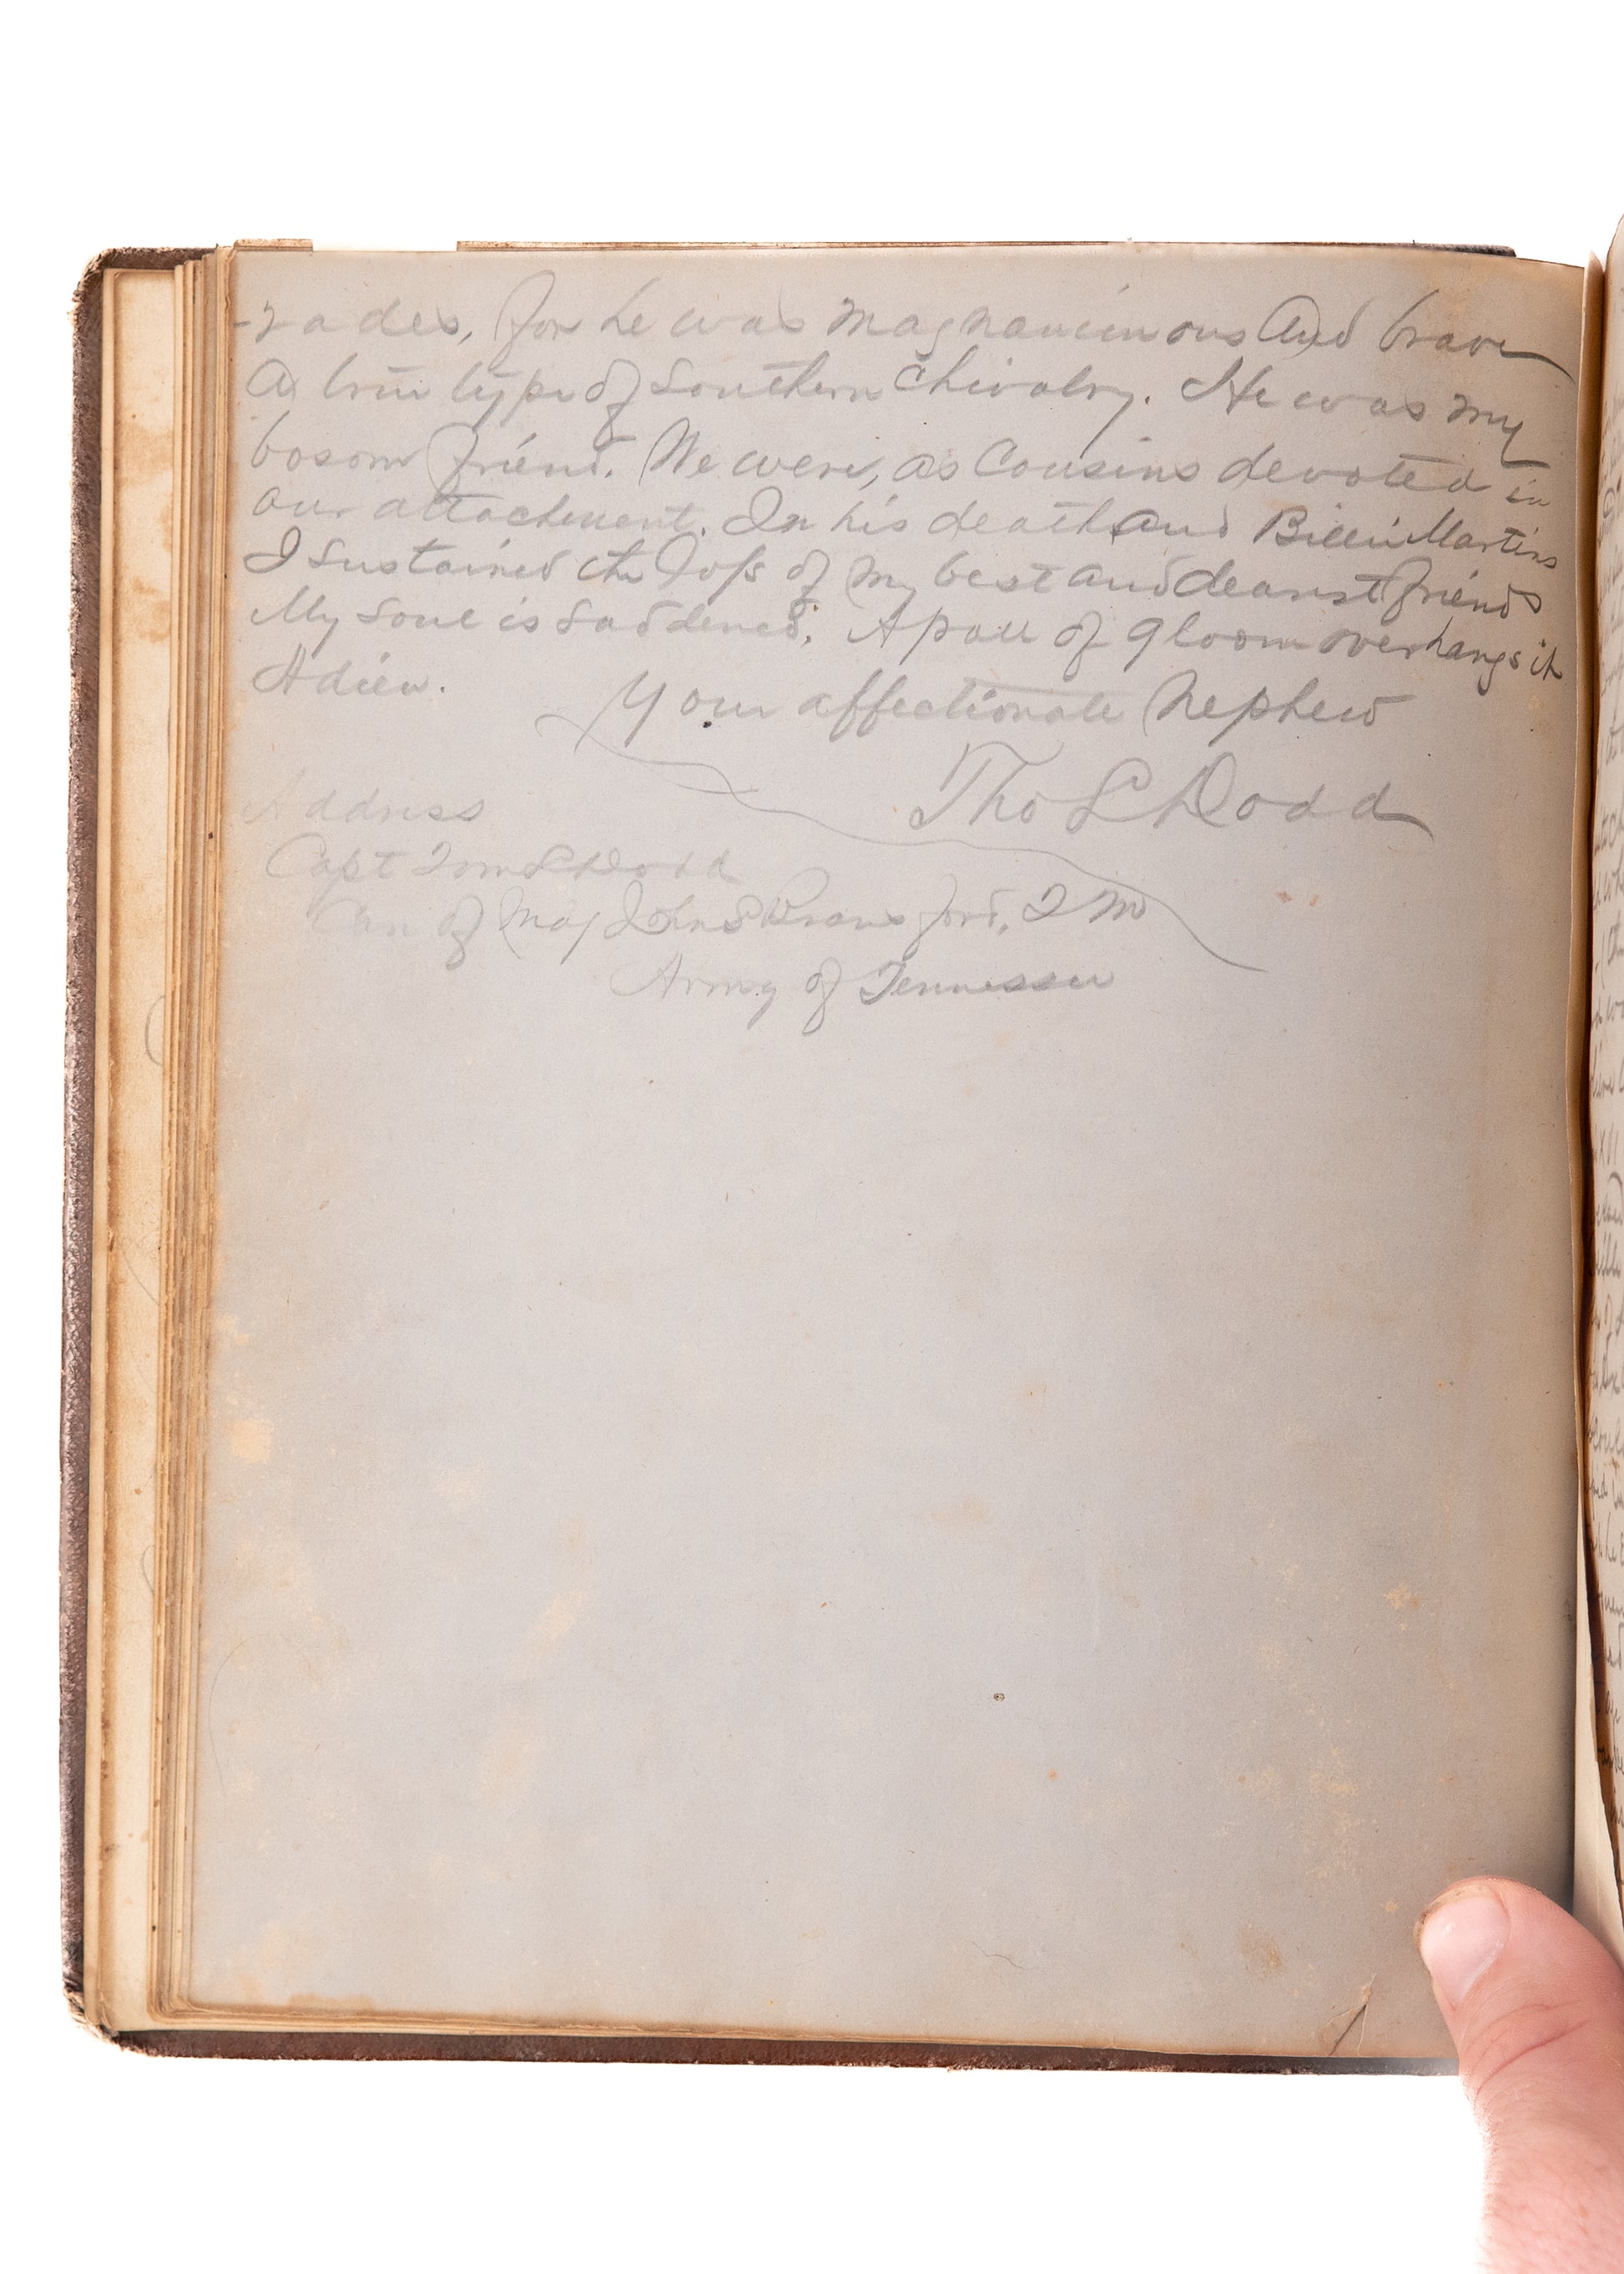 -rades, for he was magnanimous and brave
A true type of Southern Chivalry. He was my
bosom friend. We were, as Cousins devoted in
our attachment. In his death and Billie Martins
I sustained the loss of my best and dearest friends
My soul is saddened. A pall of gloom overhangs it
Adieu.
Your affectionate Nephew
Tho S Dodd
Address
Capt Tom S Dodd
Care of Maj John S Bransford, 2 M
Army of Tennessee